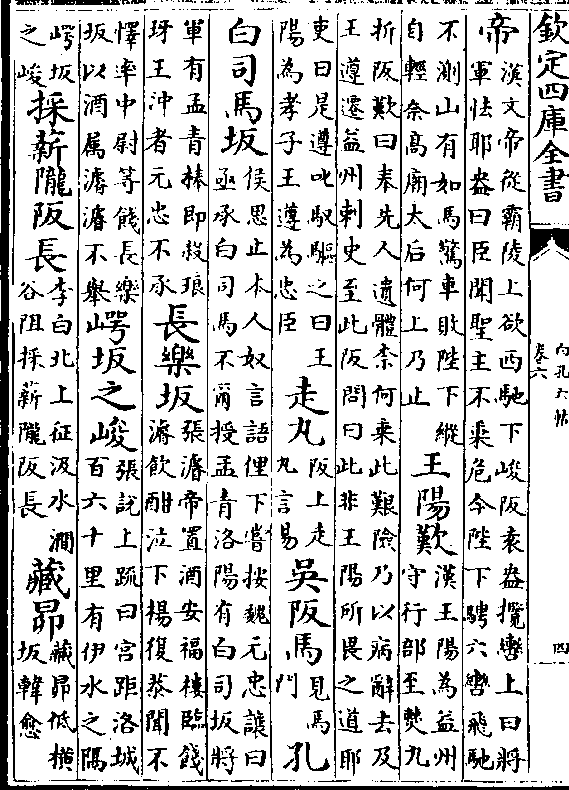 欽定四庫全書
白孔六帖
卷六
四
帝
漢文帝從霸陵上欲西馳下峻阪袁盎攬轡上曰將
軍怯耶盎曰臣聞聖主不乘危今陛下騁六轡飛馳
不測山有如馬驚車敗陛下縱
自輕奈高廟太后何上乃止
王陽歎
漢王陽為益州
守行部至僰九
折阪歎曰奉先人遺體柰何乘此艱險乃以病辭去及
王遵遷益州刺史至此阪問曰此非王陽所畏之道耶
吏曰是遵叱馭驅之曰王
陽為孝子王遵為忠臣
走丸
阪上走
丸言易
吳阪馬
見馬
門
孔
白司馬坂
侯思止本人奴言語俚下嘗按魏元忠讓曰
亟承白司馬不爾授孟青洛陽有白司坂將
軍有孟青棒即殺琅
玡王沖者元忠不承
長樂坂
張濬帝置酒安福樓臨餞
濬飲酣泣下楊復恭閒不
懌率中尉等餞長樂
坂以酒属濬濬不舉
崿坂之峻
張說上疏曰宮距洛城
百六十里有伊水之隅
崿坂
之峻
採薪隴阪長
李白北上征汲水澗
谷阻採薪隴阪長
藏昂
藏昂低橫
坂韓愈